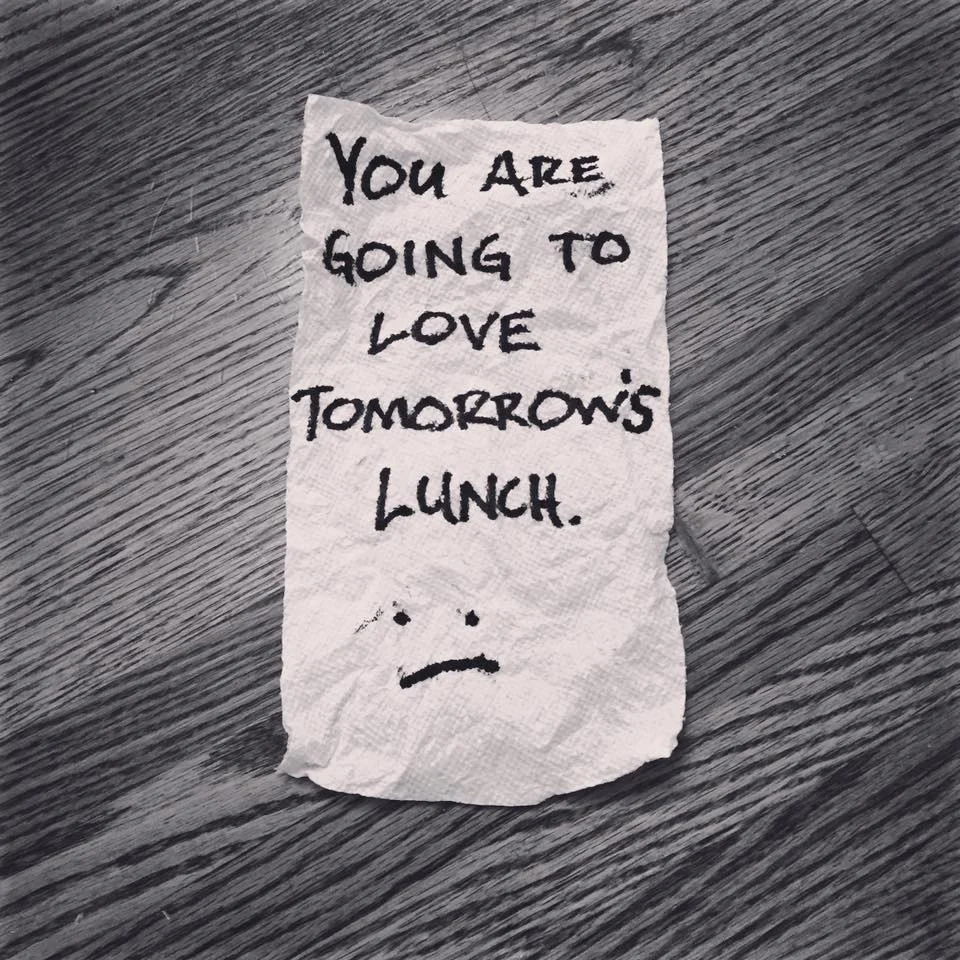 YOU ARE
GOING TO
LOVE
TOMORROW'S
LUNCH.